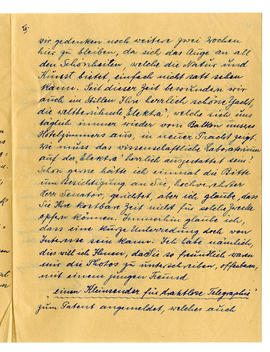 wir gedenken noch weitere zwei Wochen
hier zu bleiben, da sich das Auge an all
den Schönheiten, welche die Natur und
Kunst bietet, einfach nicht satt sehen
kann. Seit dieser Zeit bewundern wir
auch im Stillen Ihre herrlich schöne Yacht,
die weltberühmte „Elektra", welche sich uns
täglich immer wieder vom Balkon unseres
Hotelzimmers aus, in neuer Pracht zeigt.
Wie muss das wissenschaftliche Laboratorium
auf der „Elektra" herrlich ausgestattet sein!
Schon gerne hätte ich einmal die Bitte
um Besichtigung an Sie, hochverehrter
Herr Senator, gerichtet, aber ich glaube, dass
Sie Ihre kostbare Zeit nicht für solche Zwecke
opfern können. Immerhin glaube ich,
dass eine kurze Unterredung doch von
Interesse sein kann. Ich habe nämlich,
dies will ich Ihnen, da Sie so freundlich waren
mir die Photos zu unterschreiben, offenbaren,
mit einem jungen Freund
„einen Kleinsender für drahtlose Telegraphie"
zum Patent angemeldet, welches auch